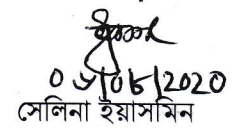 ০৬/০৮/2020
সেলিনা ইয়াসমিন